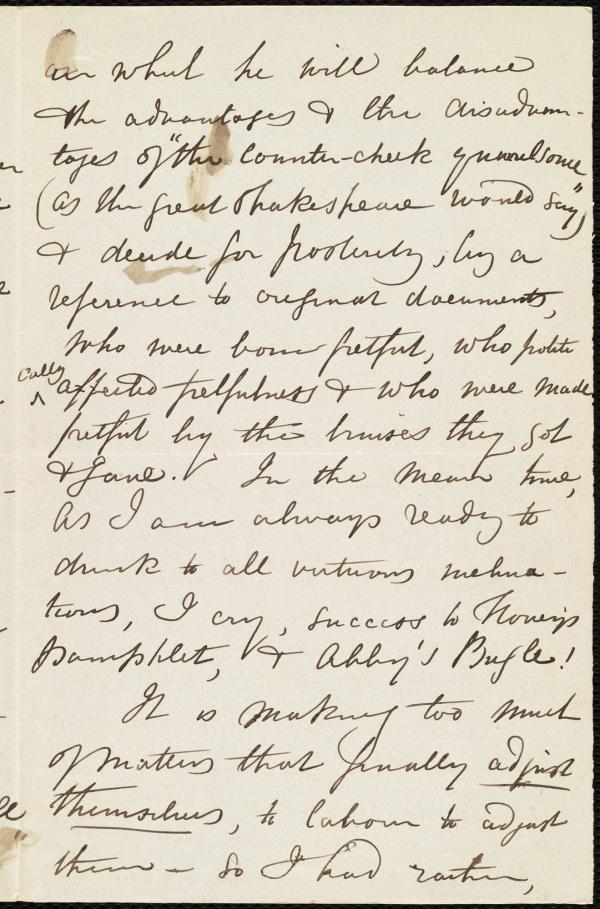 on what he will balance
the advantages & the disadvan-
tages of "the counter-check quarrelsome
(as the great Shakespeare would say")
& decide for Posterity, by a
reference to original documents,
who were born fretful, who politi
cally
affected fretfulness & who were made
fretful by the bruises they got
& gave. In the mean time,
as I am always ready to
drink to all virtuous inclina-
tions, I cry, success to Hovey's
Pamphlet, & Abby's Bugle!
It is making too much
of matters that finally adjust
themselves, to labour to adjust
them - so I had rather,